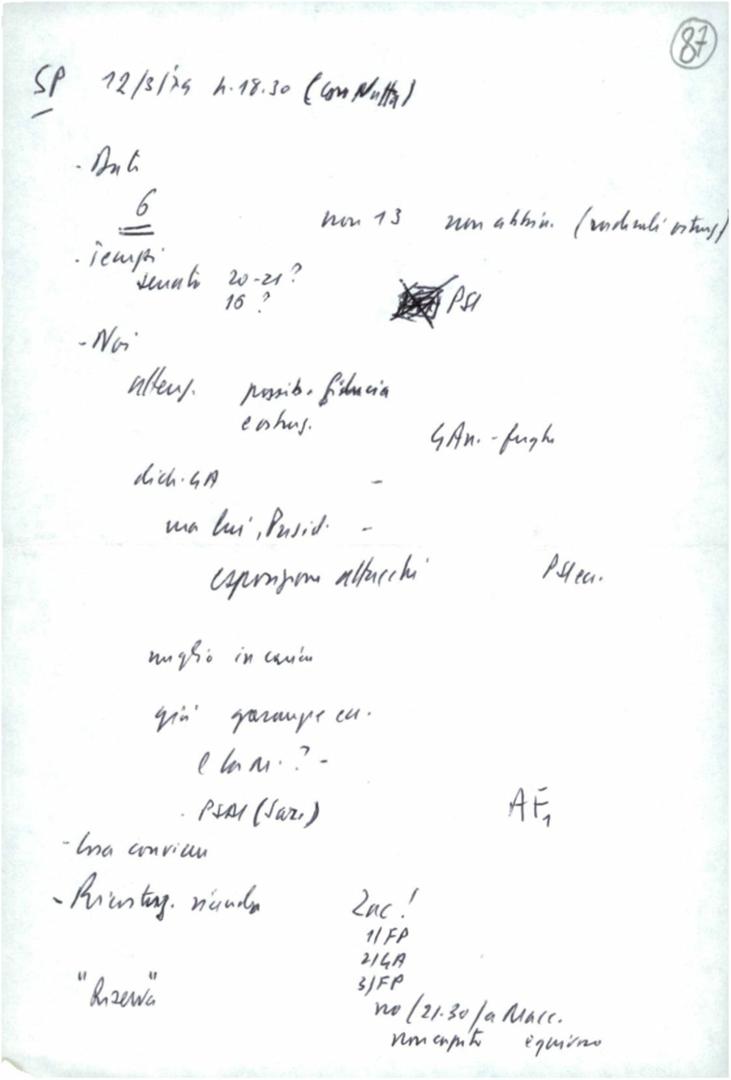 87
SP 12/3/79 h. 18.30 (con Natta)
- Date
6
non 13 non abbin. (radicali ostruz)
- Tempi
senato 20-21?
16 ?
PSI
- Noi
atteg. possib. fiducia
e ostrug.
GAn. - fughe
dich. GA -
ma lui, Presid. -
esposizione attacchi PSI ecc.
meglio in carica
già garanzie ecc.
PSDI (Sar.)
AF1
- Cosa conviene
- Ricostruz. vicenda Zac!
1/ FP
2/ GA
3/ FP
"Riserva"
no (21.30) a Macc.
non capito equivoco